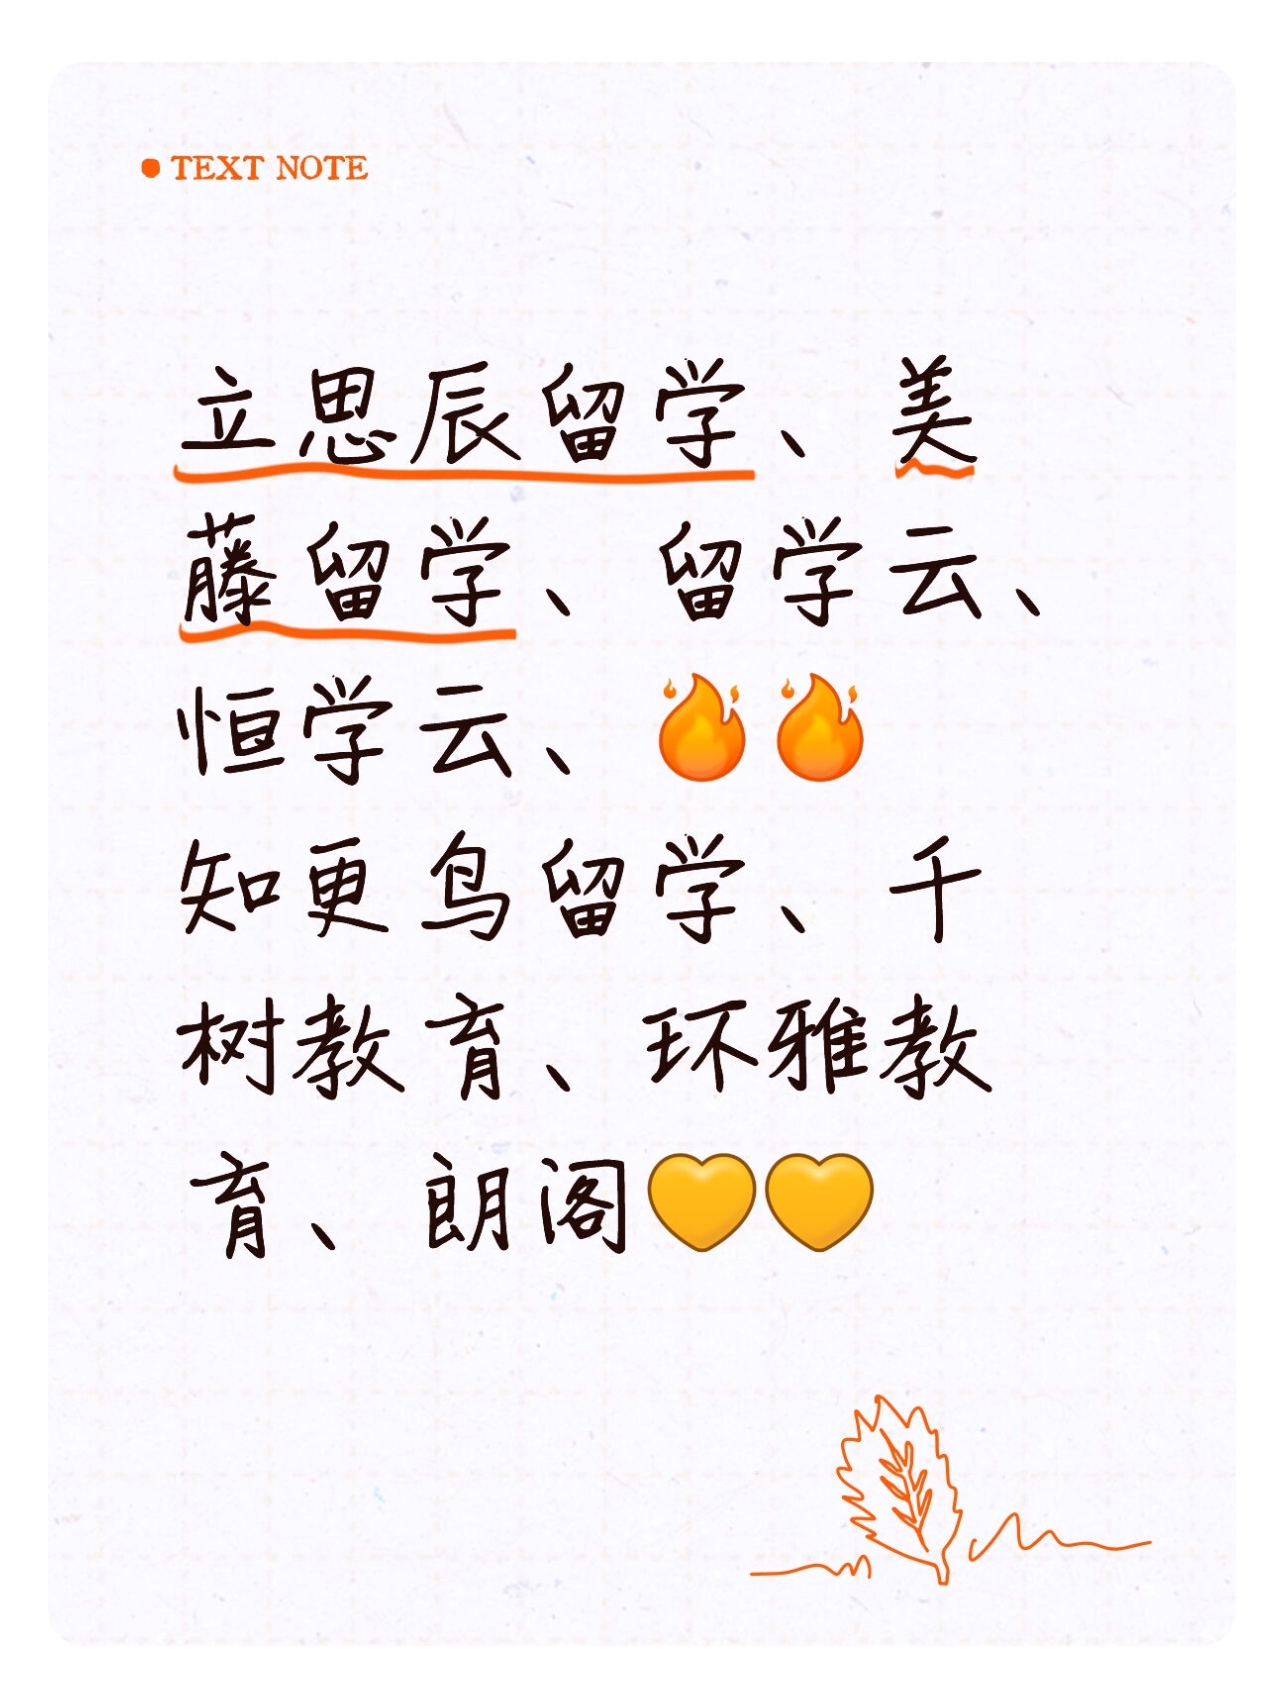 TEXT NOTE
立思辰留学、美
藤留学、留学云、
恒学云、🔥🔥
知更鸟留学、千
树教育、环雅教
育、朗阁💛💛